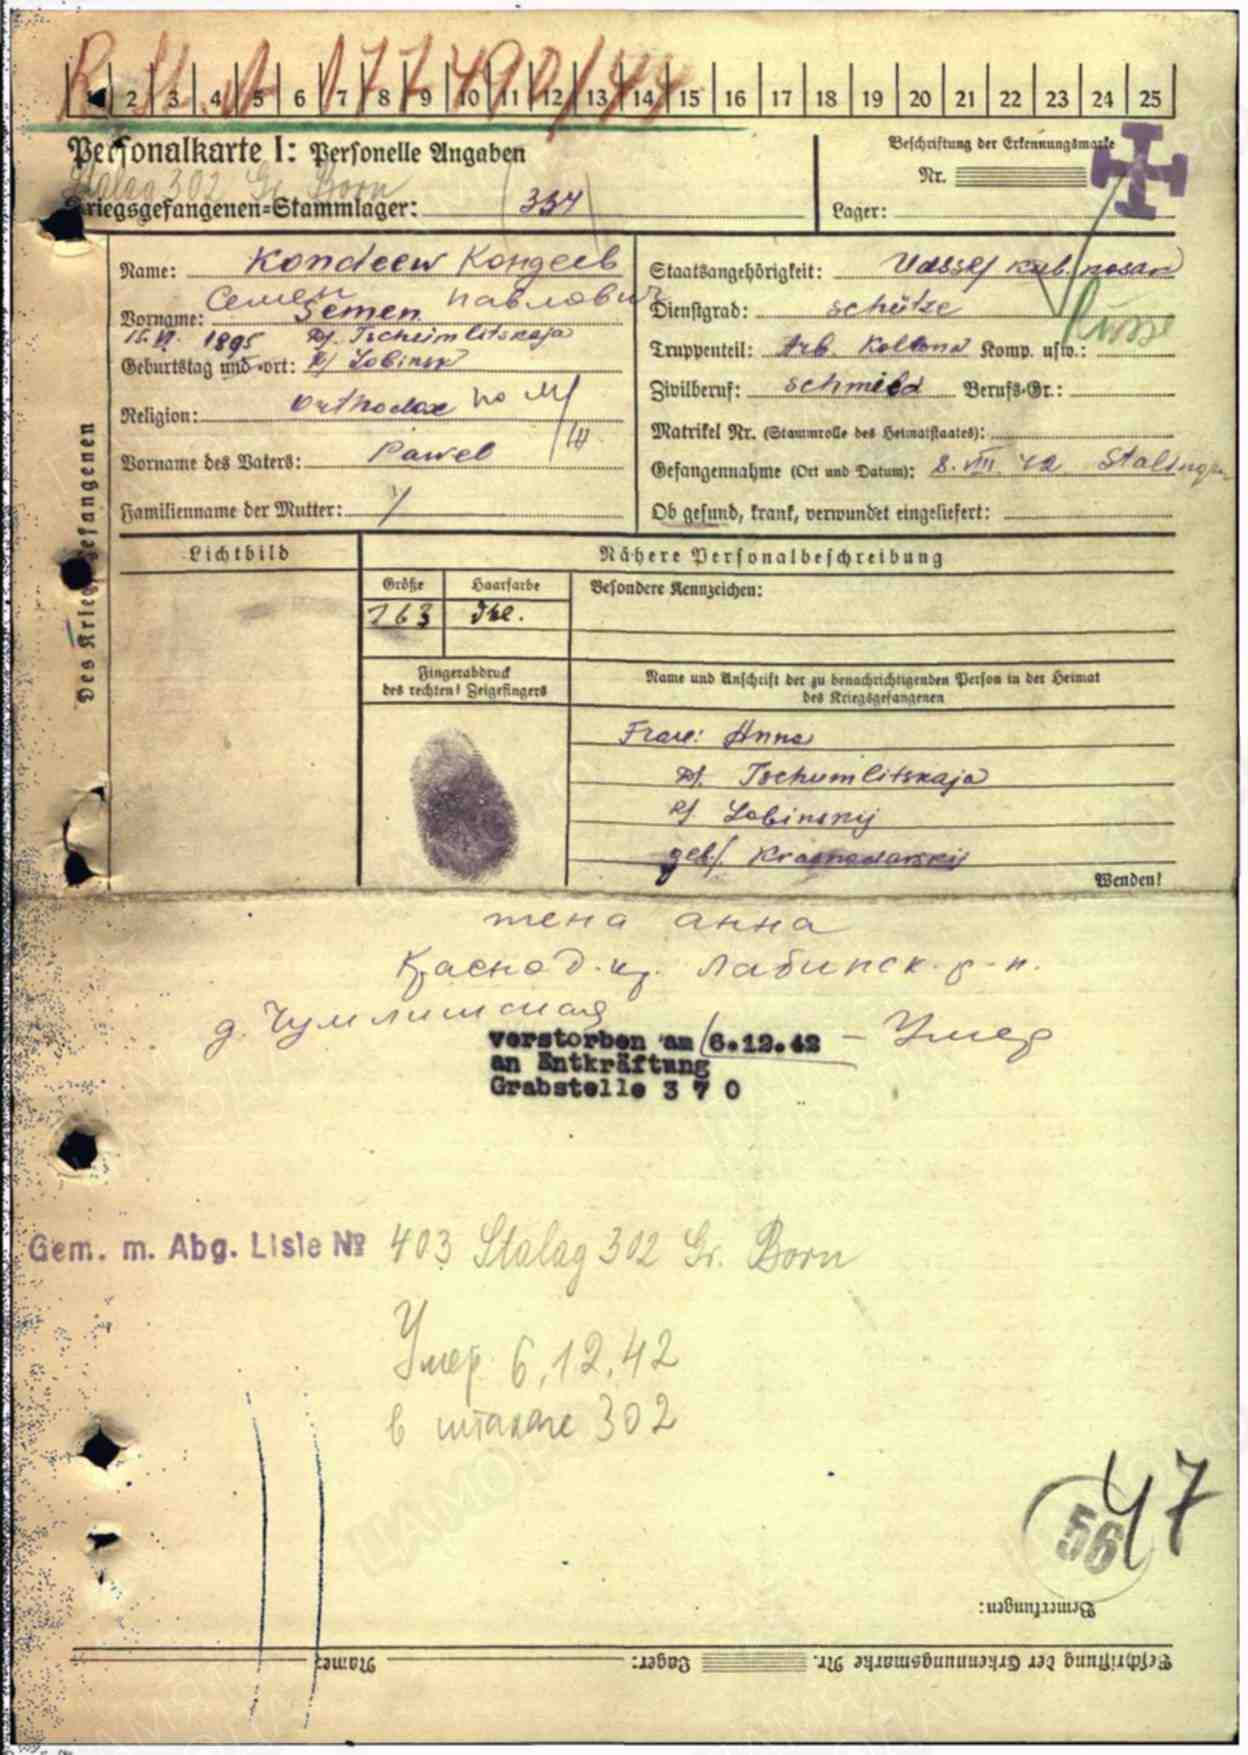 R. St. A 177490/44
1 2 3 4 5 6 7 8 9 10 11 12 13 14 15 16 17 18 19 20 21 22 23 24 25
Personalkarte I: Personelle Angaben
Beschriftung der Erkennungsmarke
Stalag 302 Gr. Born
Nr.
Kriegsgefangenen-Stammlager: 334
Lager:
Des Kriegsgefangenen
Name: Kondeew Кондеев
Семен Павлович
Vorname: Semen
15.VI. 1895 Df. Tscheimlitskaja
Geburtstag und -ort: R/ Lobinsk
Religion: Orthodox
Vorname des Vaters: Pawel
Familienname der Mutter:
Staatsangehörigkeit: Udssr kub. kosak
Dienstgrad: Schütze
Russe
Truppenteil: Arb. Kollona Komp. usw.:
Zivilberuf: Schmied Berufs-Gr.:
Matrikel Nr. (Stammrolle des Heimatstaates):
Gefangennahme (Ort und Datum): 8. VIII 42 Stalingr
Ob gesund, krank, verwundet eingeliefert:
Lichtbild
Nähere Personalbeschreibung
Größe Haarfarbe Besondere Kennzeichen:
163 dkl.
Fingerabdruck
des rechten! Zeigefingers
Name und Anschrift der zu benachrichtigenden Person in der Heimat
des Kriegsgefangenen
Frau: Anna
Df. Tschumlitskaja
R/ Lobinskij
geb./ Krasnodarskij
Wenden!
жена Анна
Краснод. кр. Лабинск. р-н.
д. Чумлитская
verstorben am 6.12.42 — Умер
an Entkräftung
Grabstelle 370
Gem. m. Abg. Liste № 403 Stalag 302 Gr. Born
Умер. 6.12.42
в шталаге 302
47
56
Bemerkungen:
Beschriftung der Erkennungsmarke Nr. Lager: Name: